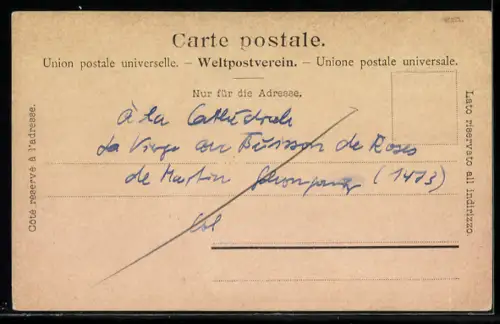 Carte postale.
Union postale universelle. – Weltpostverein. – Unione postale universale.
Nur für die Adresse.
Côté réservé à l'adresse.
Lato riservato all indirizzo.
à la Cathédrale
La Vierge au Buisson de Roses
de Martin Schongauer (1473)